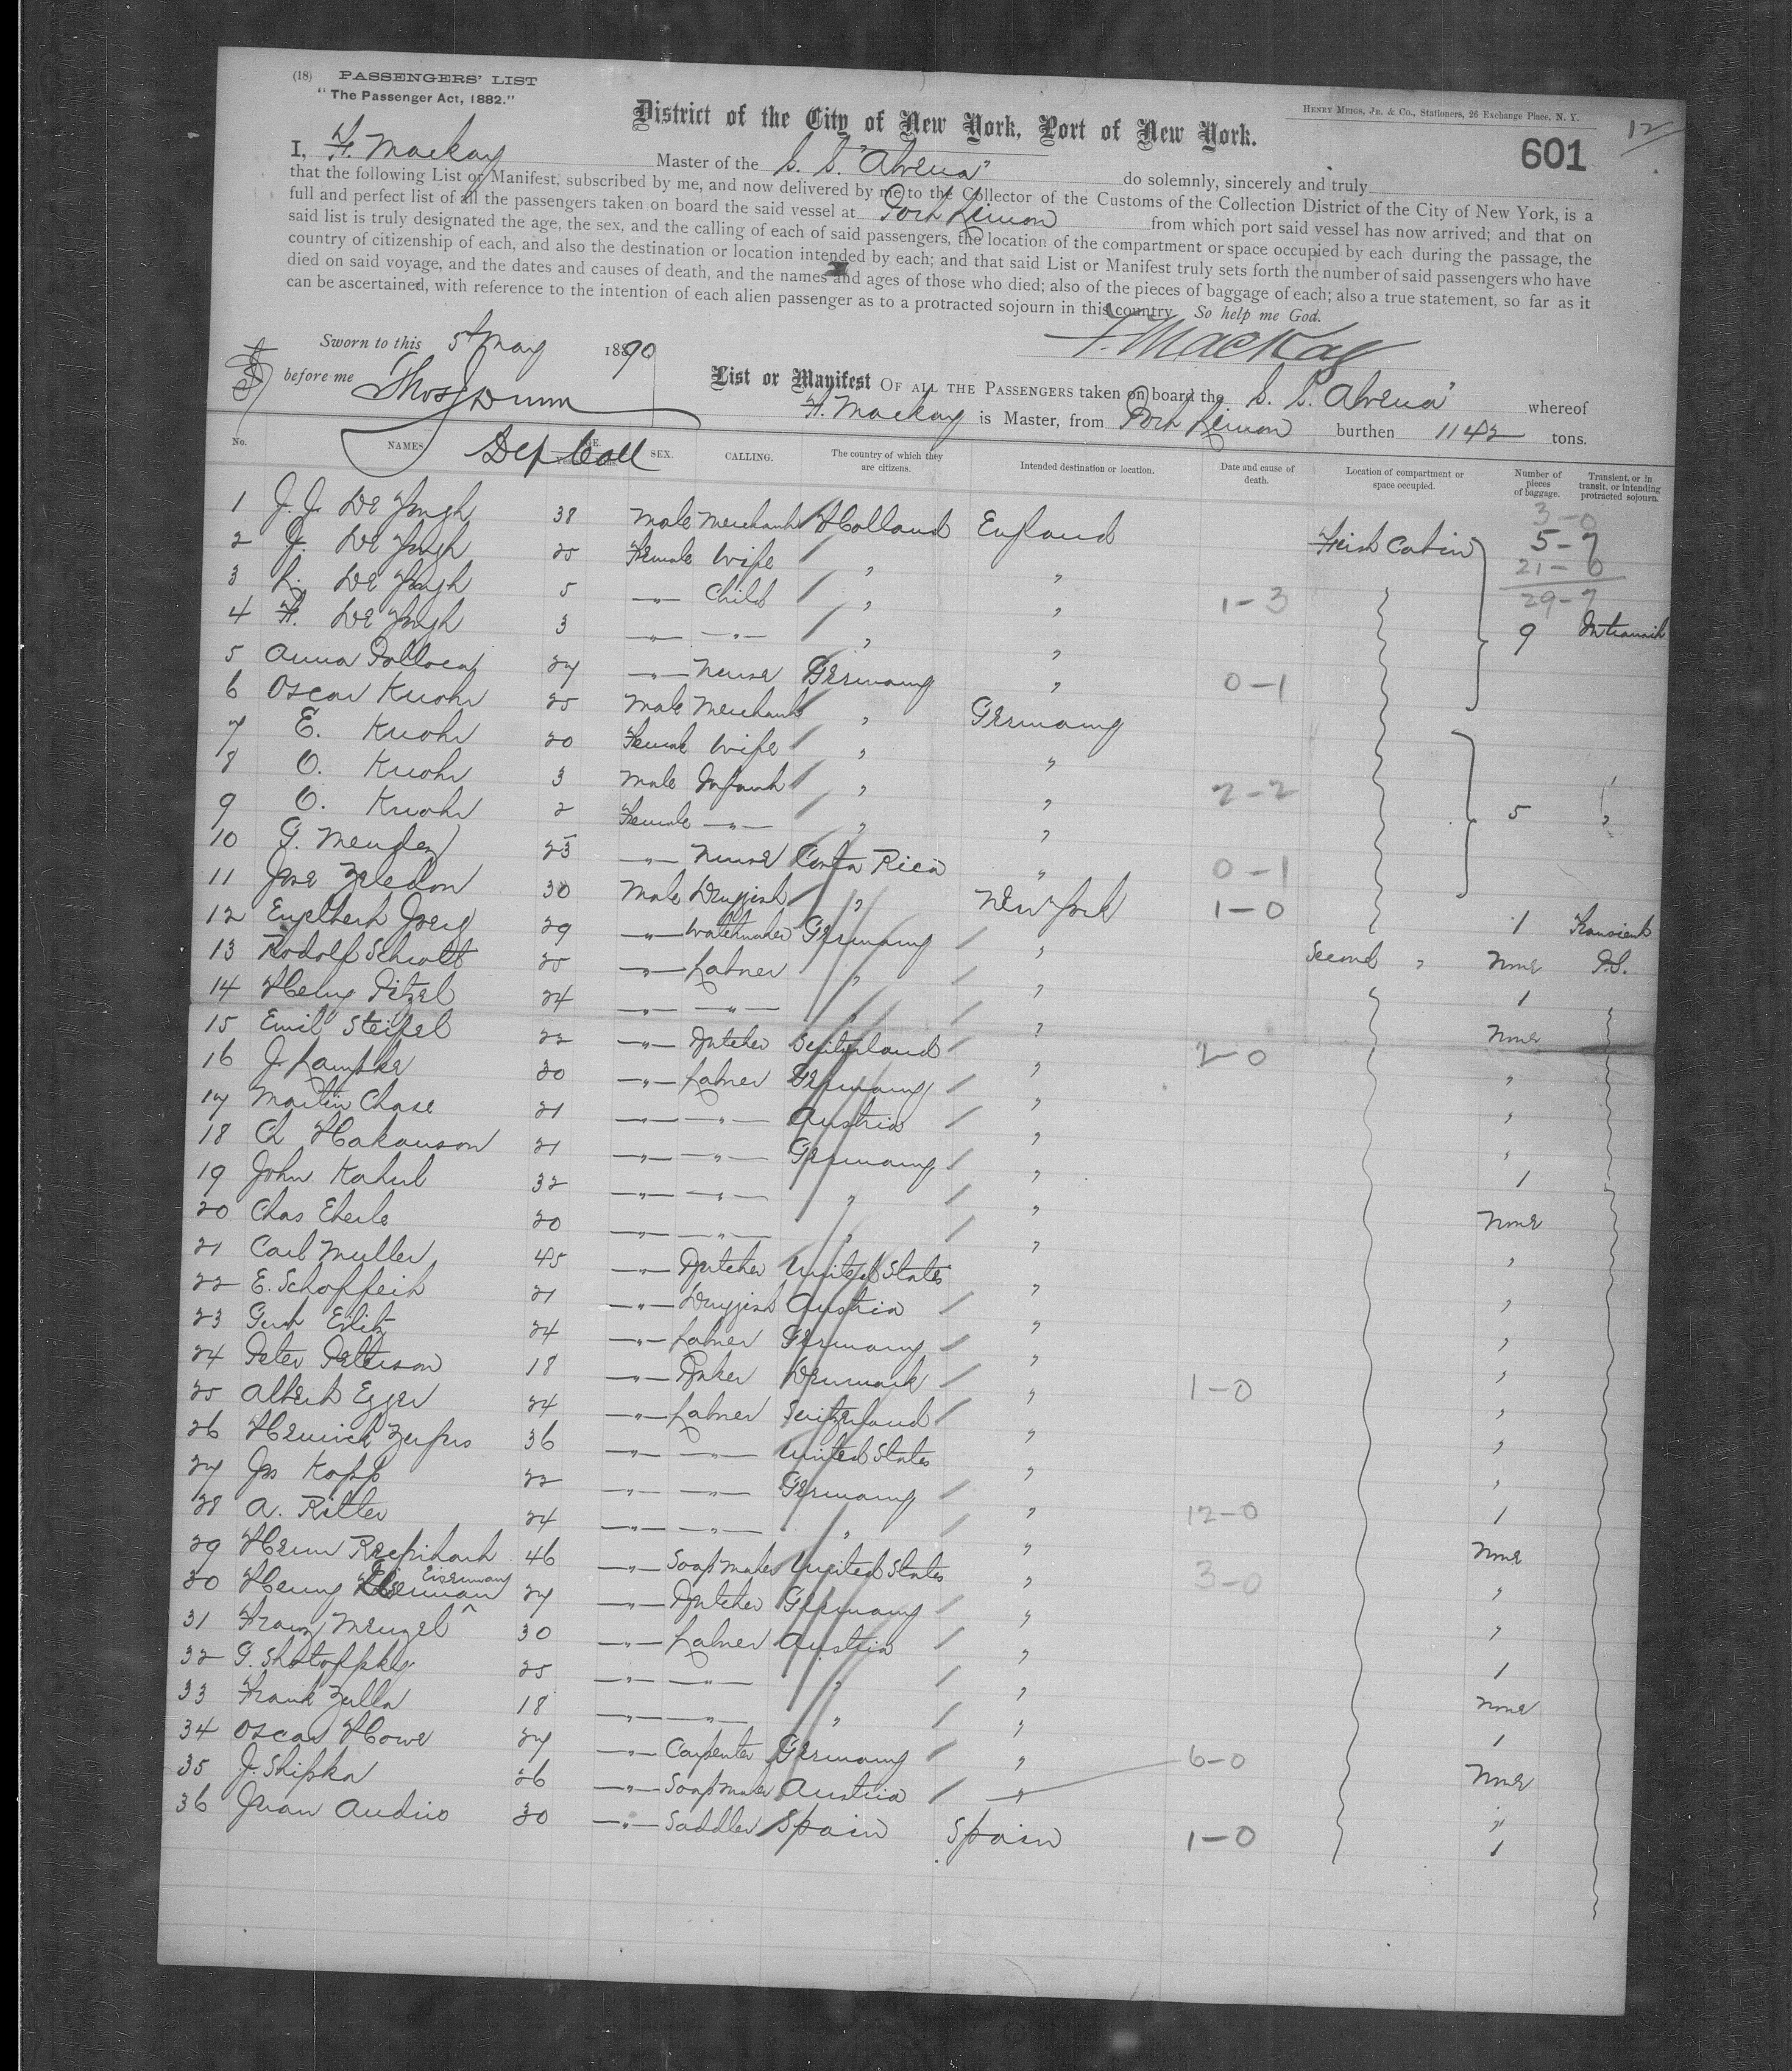 (18) PASSENGERS' LIST
"The Passenger Act, 1882."
HENRY MEIGS, JR. & CO., Stationers, 26 Exchange Place, N. Y.
12
District of the City of New York, Port of New York.
601
I, F. Mackay Master of the S. S. "Alvena" do solemnly, sincerely and truly
that the following List or Manifest, subscribed by me, and now delivered by me to the Collector of the Customs of the Collection District of the City of New York, is a
full and perfect list of all the passengers taken on board the said vessel at Port Limon from which port said vessel has now arrived; and that on
said list is truly designated the age, the sex, and the calling of each of said passengers, the location of the compartment or space occupied by each during the passage, the
country of citizenship of each, and also the destination or location intended by each; and that said List or Manifest truly sets forth the number of said passengers who have
died on said voyage, and the dates and causes of death, and the names and ages of those who died; also of the pieces of baggage of each; also a true statement, so far as it
can be ascertained, with reference to the intention of each alien passenger as to a protracted sojourn in this country. So help me God.
Sworn to this 5th May 1890
F. Mackay
before me Thos J Dunn
List or Manifest OF ALL THE PASSENGERS taken on board the S. S. Alvena" whereof
F. Mackay is Master, from Port Limon burthen 1142 tons.
Dep Coll
No. NAMES AGE. SEX. CALLING. The country of which they are citizens. Intended destination or location. Date and cause of death. Location of compartment or space occupied. Number of pieces of baggage. Transient, or in transit, or intending protracted sojourn.
3-0
5-7
21-0
29-7
1 J. J. De Jongh 38 Male Merchant Holland England First Cabin
2 J. De Jongh 25 Female Wife " "
3 L. De Jongh 5 " Child " " 1-3
4 F. De Jongh 3 " " " " 9 In transit
5 Anna 27 " Nurse Germany " 0-1
6 Oscar Knohr 25 Male Merchant " Germany
7 E. Knohr 20 Female Wife " "
8 O. Knohr 3 Male Infant " " 2-2
9 O. Knohr 2 Female " " " 5 "
10 G. Mendez 23 " Nurse Costa Rica " 0-1
11 Jose Zeledon 30 Male Druggist " New York 1-0 1 Transient
12 Engelbert 29 " Watchmaker Germany " Second " None P.S.
13 Rodolf Schrott 25 " Labner " " 1
14 Henry Pitzel 24 " " " " None
15 Emil Steifel 22 " Butcher Switzerland " 2-0 "
16 J. Lampke 20 " Labner Germany " "
17 Martin Chase 21 " " Austria " "
18 Ch Hakanson 21 " " Germany " 1
19 John Kahul 32 " " " " None
20 Chas Eberle 20 " " " " "
21 Carl Muller 45 " Butcher United States " "
22 E. Schoffeih 21 " Druggist Austria " "
23 Gust Erlitz 24 " Labner Germany " "
24 Peter Petterson 18 " Baker Denmark " 1-0 "
25 Albert Egger 24 " Labner Switzerland " "
26 Heinrich 36 " " United States " "
27 Jos Kopp 22 " " Germany " 1
28 A. Ritter 24 " " " " 12-0 None
29 Herm 46 " Soap maker United States " 3-0 "
30 Henry Eisermann 27 " Butcher Germany " "
31 Franz Menzel 30 " Labner Austria " 1
32 G. 25 " " " " None
33 Frank Zulla 18 " " " " 1
34 Oscar Howe 27 " Carpenter Germany " 6-0 None
35 J. Shipka 26 " Soap maker Austria " "
36 Juan Audino 30 " Saddler Spain Spain 1-0 1